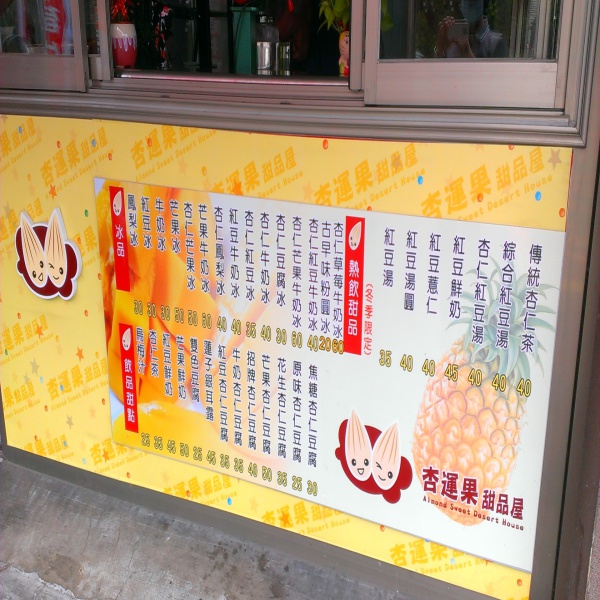 杏運果甜品屋
Almond Sweet Desert House
冰品
鳳梨冰 30
紅豆冰 30
牛奶冰 30
芒果冰 50
杏仁芒果冰 50
芒果牛奶冰 60
杏仁鳳梨冰 40
紅豆牛奶冰 40
杏仁紅豆冰 35
杏仁牛奶冰 40
杏仁豆腐冰 30
杏仁芒果牛奶冰 60
杏仁紅豆牛奶冰 40
古早味粉圓冰 20
杏仁草莓牛奶冰 60
熱飲甜品
(冬季限定)
紅豆湯 35
紅豆湯圓 40
紅豆薏仁 40
紅豆鮮奶 45
杏仁紅豆湯 40
綜合紅豆湯 40
傳統杏仁茶 40
飲品甜點
烏梅汁 25
杏仁茶 35
紅豆鮮奶 45
芒果鮮奶 50
雙色豆腐 25
蓮子銀耳露 45
紅豆杏仁豆腐 35
牛奶杏仁豆腐 35
招牌杏仁豆腐 40
芒果杏仁豆腐 50
花生杏仁豆腐 35
原味杏仁豆腐 25
焦糖杏仁豆腐 30
杏運果甜品屋
Almond Sweet Desert House